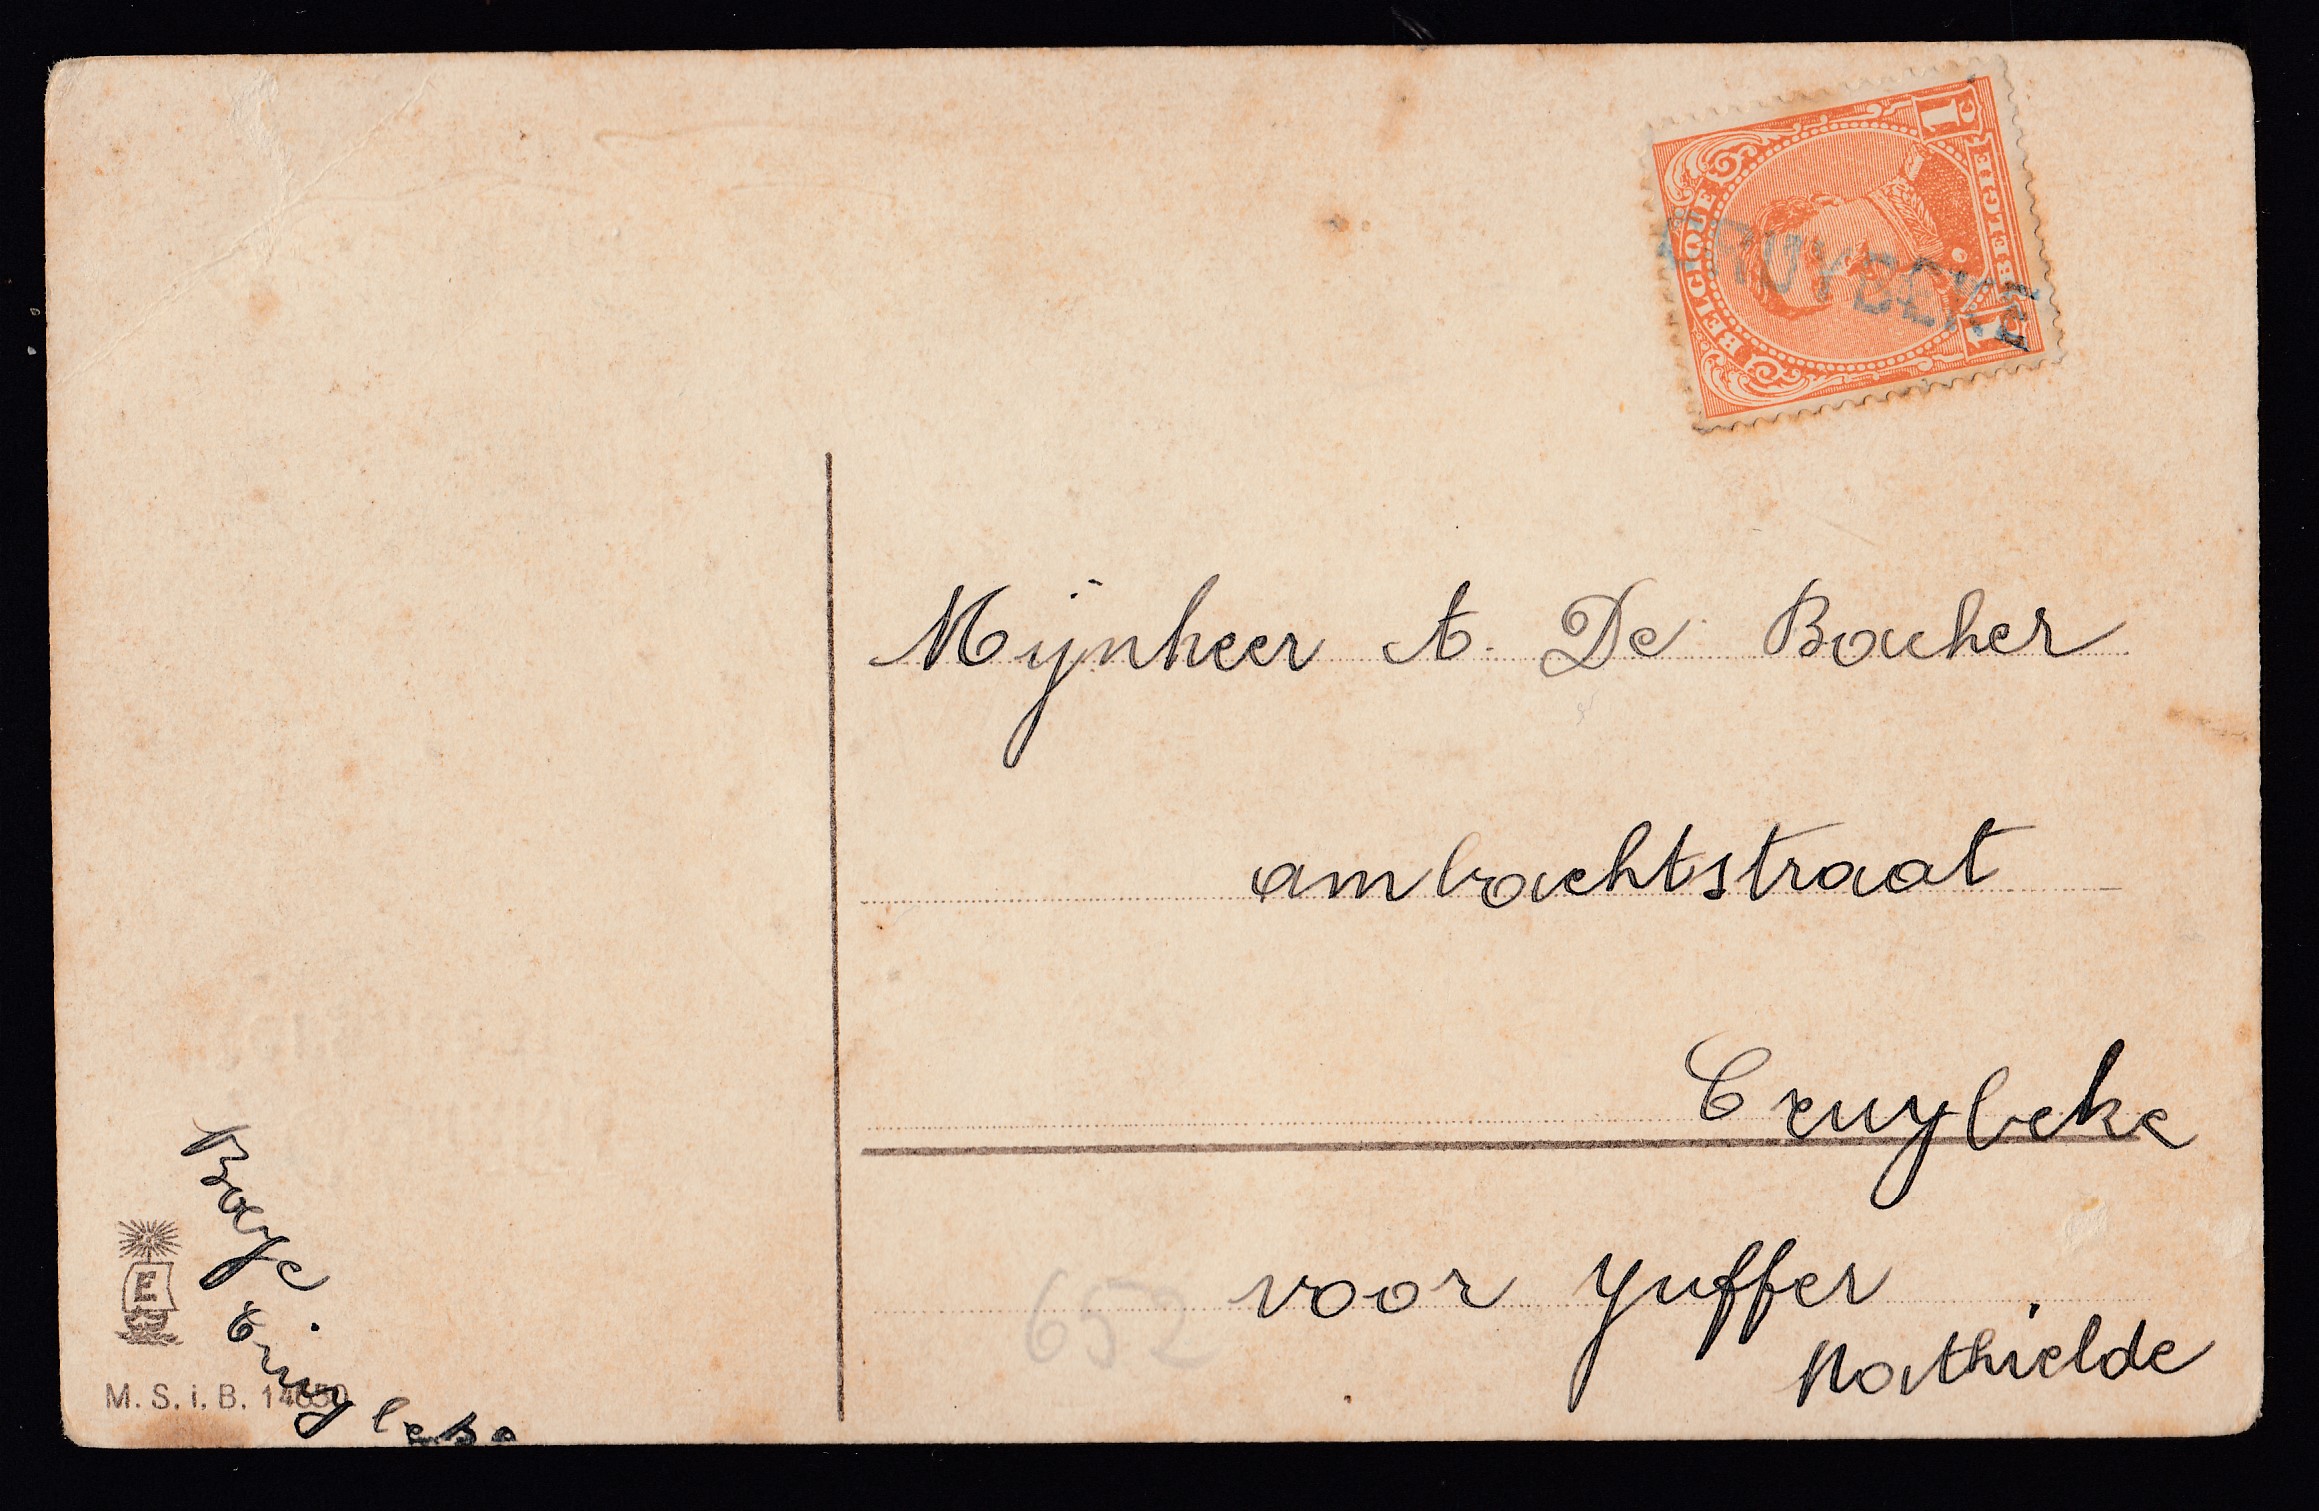 1 C
1 C
BELGIQUE
BELGIE
CRUYBEKE
Mijnheer A. De Bacher
ambachtstraat
Cruybeke
voor yuffer
Mathielde
652
Boeye
Cruybeke
E
M. S. i. B. 14650